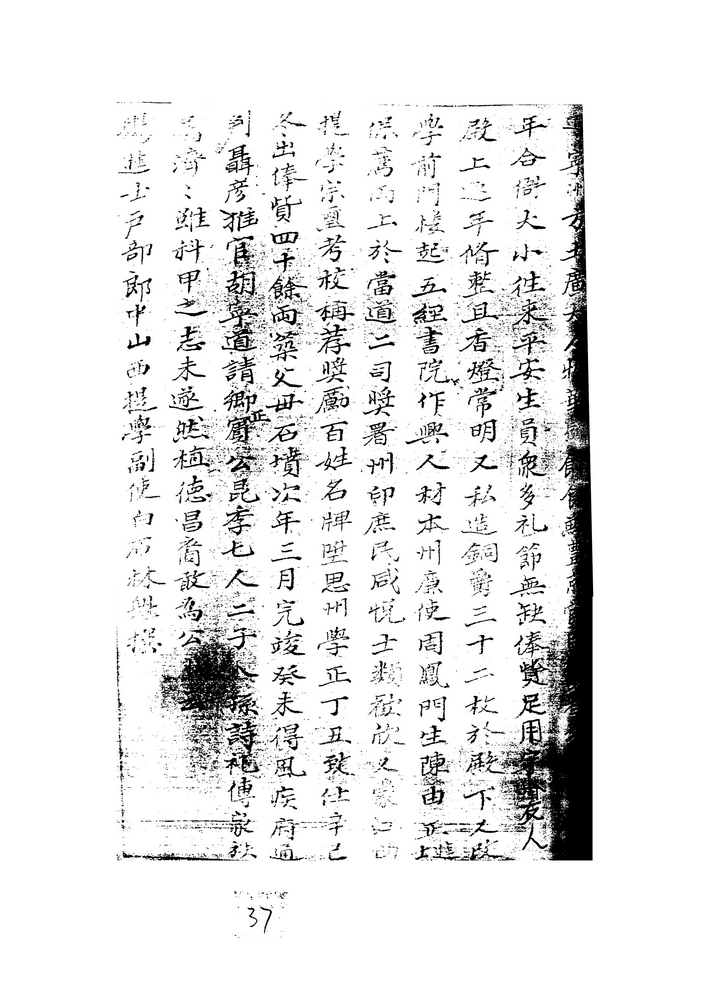 寧州
年合衙大小往来平安生員衆多礼節無缺俸貲足用友人
殿上逐年脩整且香燈常明又私造銅爵三十二枚於殿下又改
學前門樓起五經書院作興人材本州廉使周鳳門生陳由正
保薦而上於當道二司獎署州印庶民咸悅士類歡欣又
提學宗璽考校稱荐獎勵百姓名牌陞思州學正丁丑致仕辛巳
冬出俸貲四十餘兩築父母石墳次年三月完竣癸未得風疾府通
判聶彥推官胡寧道請鄉賓公昆季七人二子八孫詩禮傳家族
為濟〻雖科甲之志未遂然植德昌裔敢為公
進士戶部郎中山西提學副使白石林撰
37